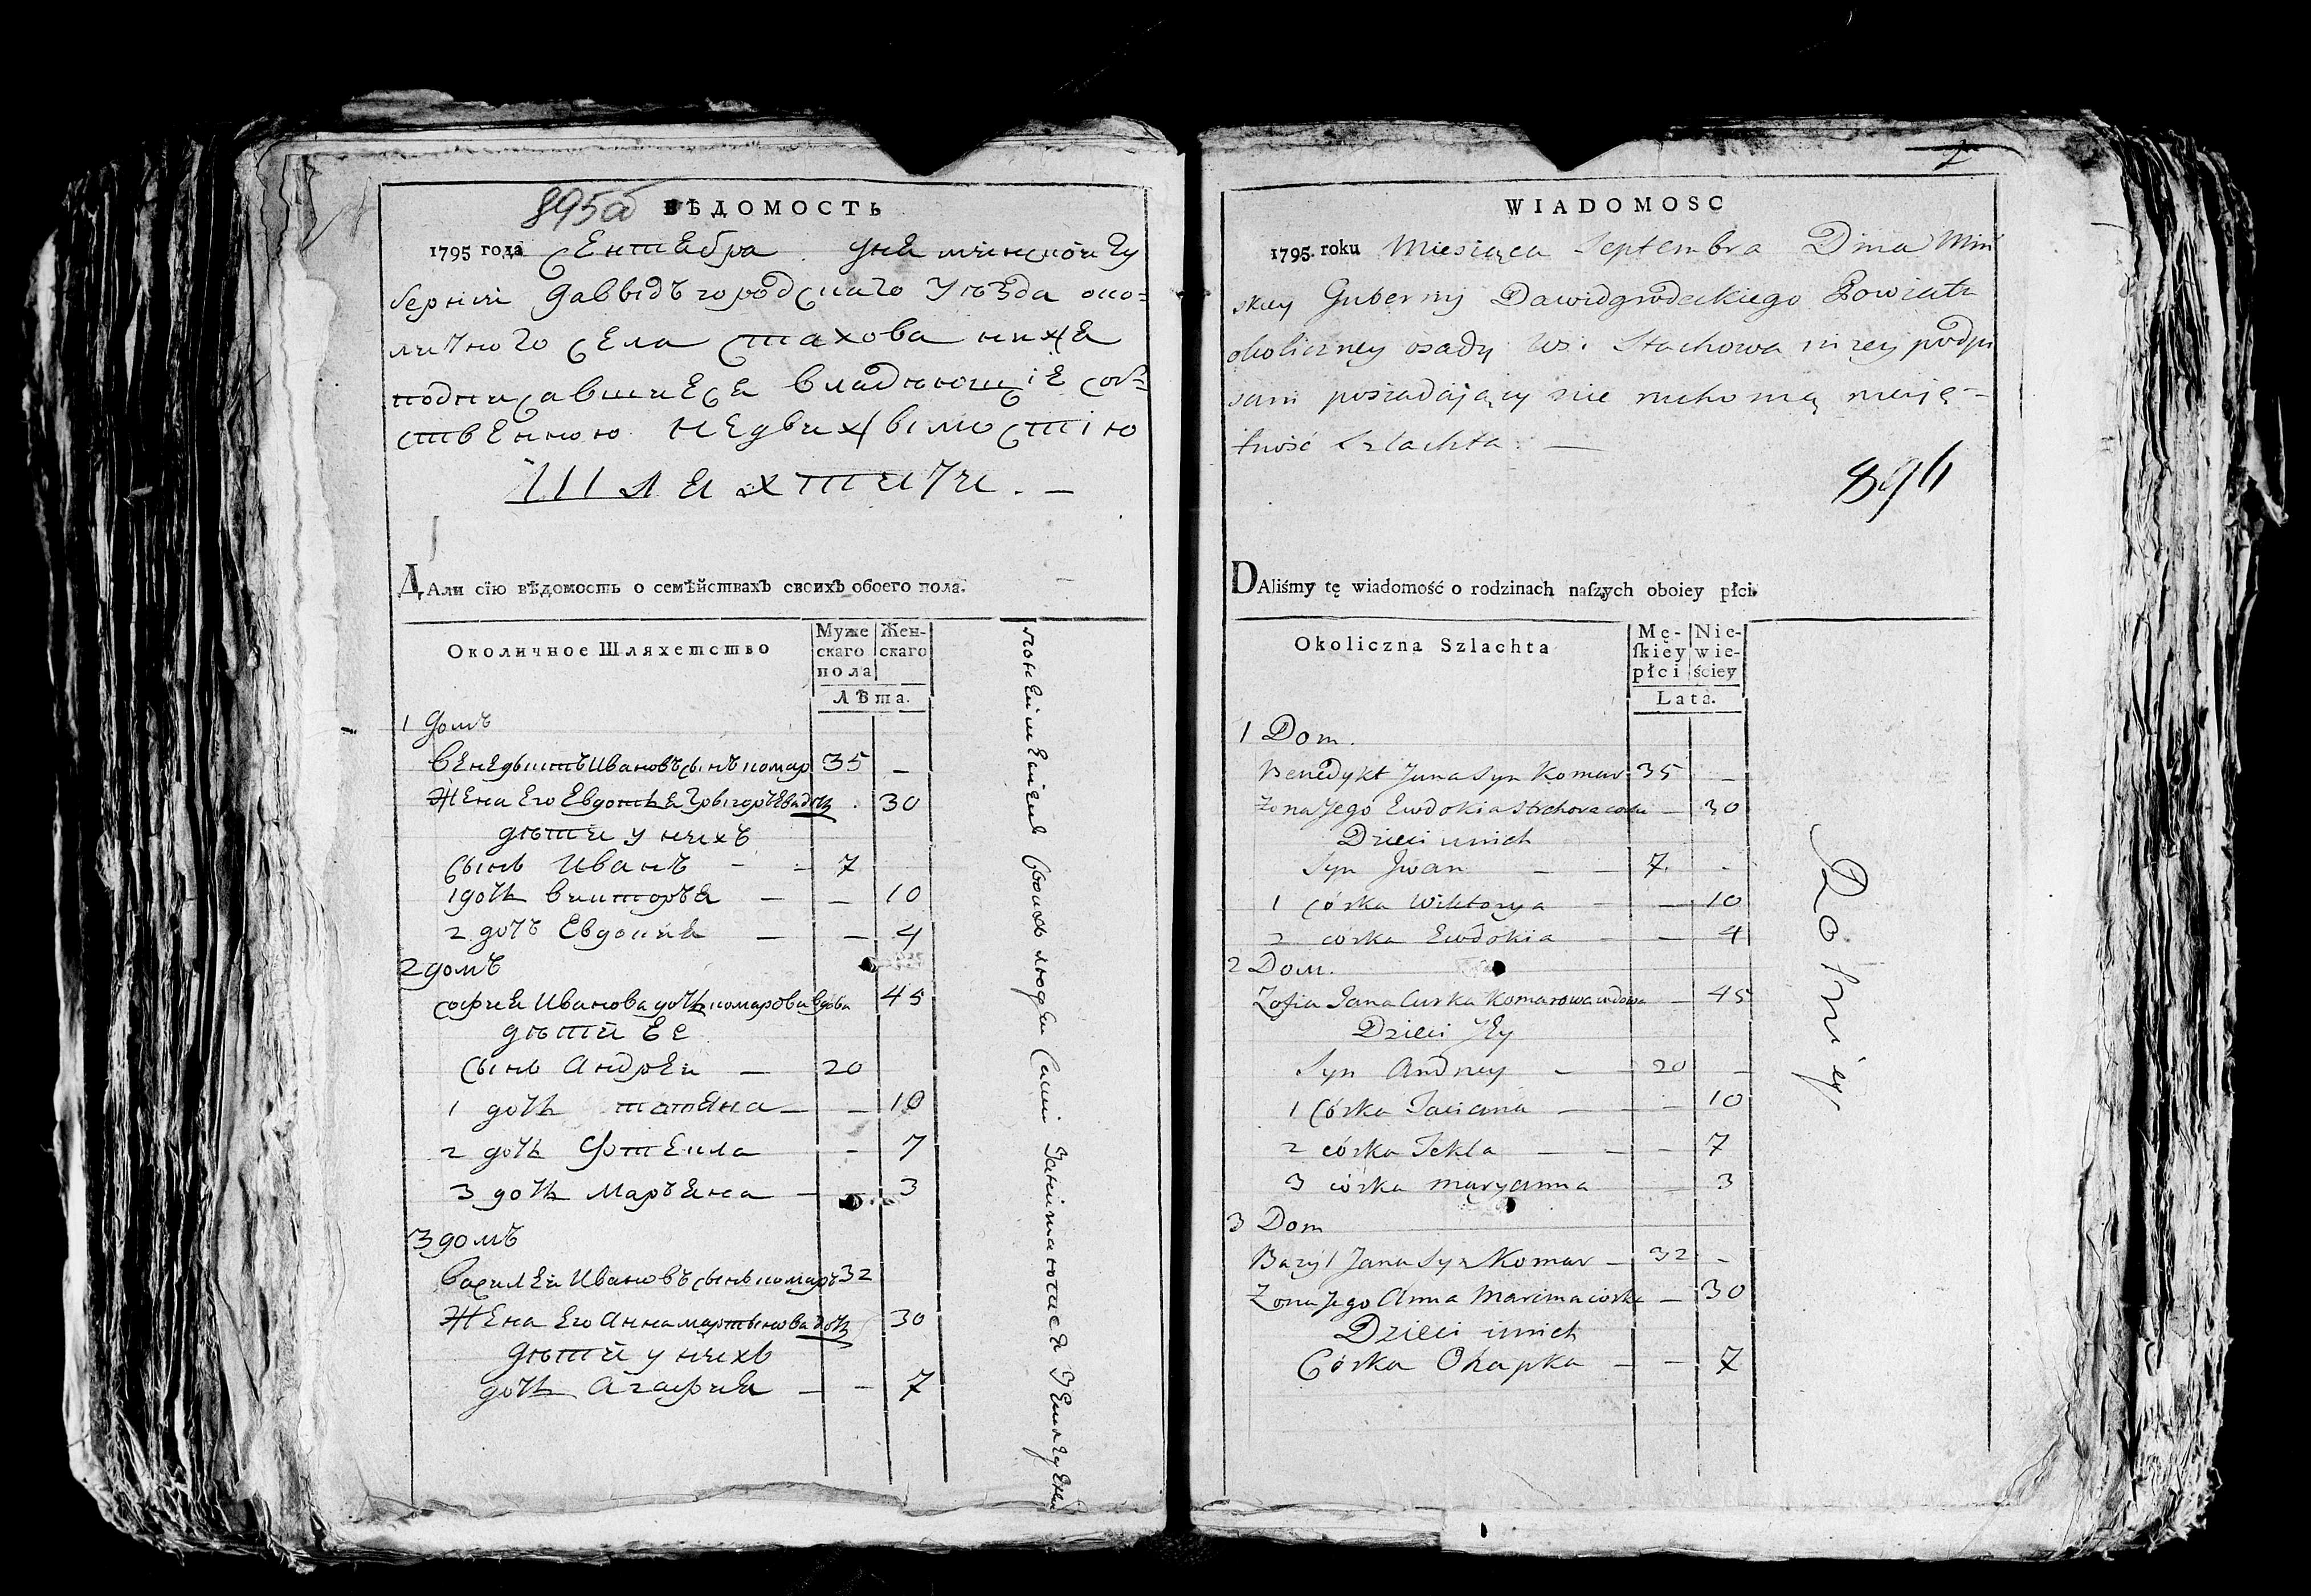 895а
ВѢДОМОСТЬ
1795 года Сентебра дне минской гу
берніи Давыдъгородскаго Уезда око=
личного села Стахова ниже
подписавшиесе владеющіе соб=
ственною недвижвімостію
Шляхтичи. —
ДАли сїю вѣдомость о семѣйствахъ своихъ обоего пола.
Околичное Шляхетство
Муже
скаго
пола
Жен-
скаго
Лѣта.
1 домъ
Венедыктъ Ивановъ сынъ комар 35 –
Жена Его Евдокия доч 30
дѣти у нихъ
Сынъ Иванъ – – 7
1 дочь Викторъя – – 10
2 дочъ Евдокия – – 4
2 домъ
София Иванова дочь комарова вдова 45
дѣти Ее
Сынъ Андрей – 20
1 дочь татяна – – 10
2 дочь Фотекла – 7
3 дочь Маръяна – 3
3 домъ
Василей Ивановъ сынъ комаръ 32
Жена Его Анна мартынова дочь 30
дѣти у нихъ
дочь Агафия – – 7
своихъ людей Сами
WIADOMOSC
1795. roku Miesiąca Septembra Dnia Miń
skiey Guberny Dawidgrodeckiego Powiatu
okoliczney osady Ws: Stachowa niżey podpi
sani posiadający nie ruchomą maję-
tność Szlachta. —
894
DAliśmy tę wiadomość o rodzinach naſzych oboiey płci.
Okoliczna Szlachta
Mę-
ſkiey
płci
Nie-
wie-
ściey
Lata.
1 Dom.
Benedykt Jana Syn Komar 35 –
Żona Jego Ewdokia – 30
Dzieci unich
Syn Jwan – – 7. -
1 córka Wiktorya – – 10
2 córka Ewdokia – – 4
2 Dom.
Zofia Jana Curka Komarowa wdowa – 45
Dzieci Jey
Syn Andrzey – – 20 –
1 Córka Taciana – – – 10
2 córka Tekla – – – 7
3 córka maryanna 3
3 Dom
Bazyl Jana Syn Komar – 32 –
Żona Jego Anna Marcina córka – 30
Dzieci unich
Córka Ohapka – – 7